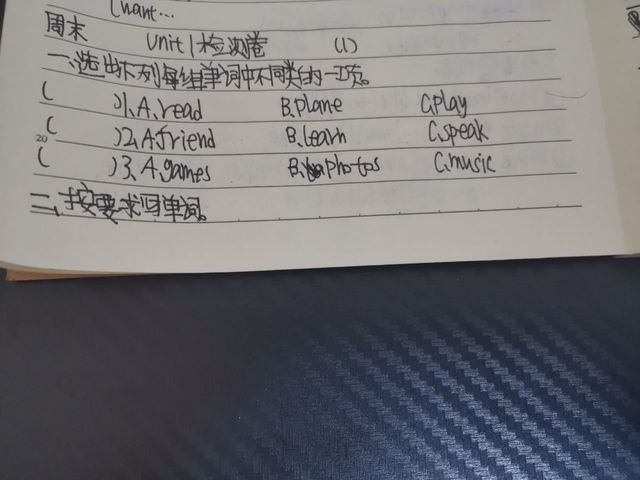 Chant...
周末 Unit 1 检测卷 (1)
一、选出下列每组单词中不同类的一项。
( )1. A. read B. plane C. play
( )2. A. friend B. learn C. speak
20
( )3. A. games B. photos C. music
二、按要求写单词。